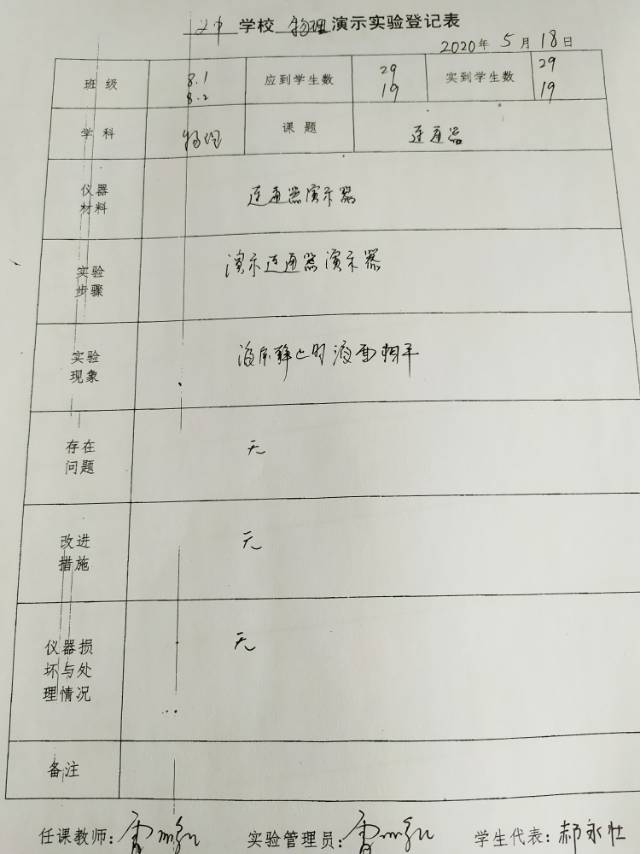 学校 物理 演示实验登记表
2020年 5 月 18 日
班级 8.1 8.2 应到学生数 29 19 实到学生数 29 19
学科 物理 课题 连通器
仪器材料 连通器演示器
实验步骤 演示连通器演示器
实验现象 液体静止时液面相平
存在问题 无
改进措施 无
仪器损坏与处理情况 无
备注
任课教师: 实验管理员: 学生代表: 郝永壮